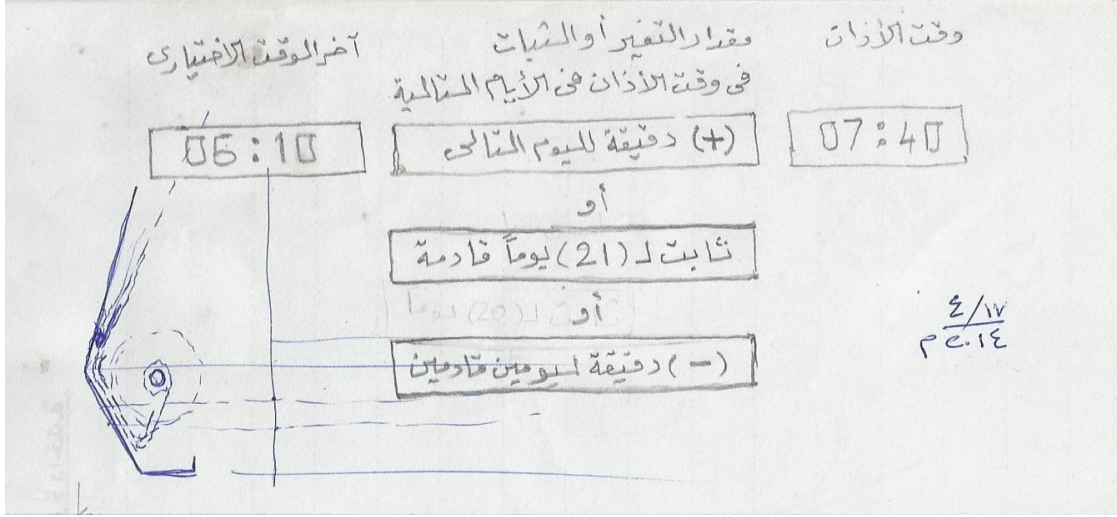 وقت الأذان
مقدار التغير أو الثبات
فى وقت الأذان فى الأيام المتتالية
آخر الوقت الاختيارى
07:40
(+) دقيقة لليوم التالى
06:10
أو
ثابت لـ (21) يوماً قادمة
أو
لـ (20) يوماً
(-) دقيقة ليومين قادمين
٤/١٧
٢٠١٤ م